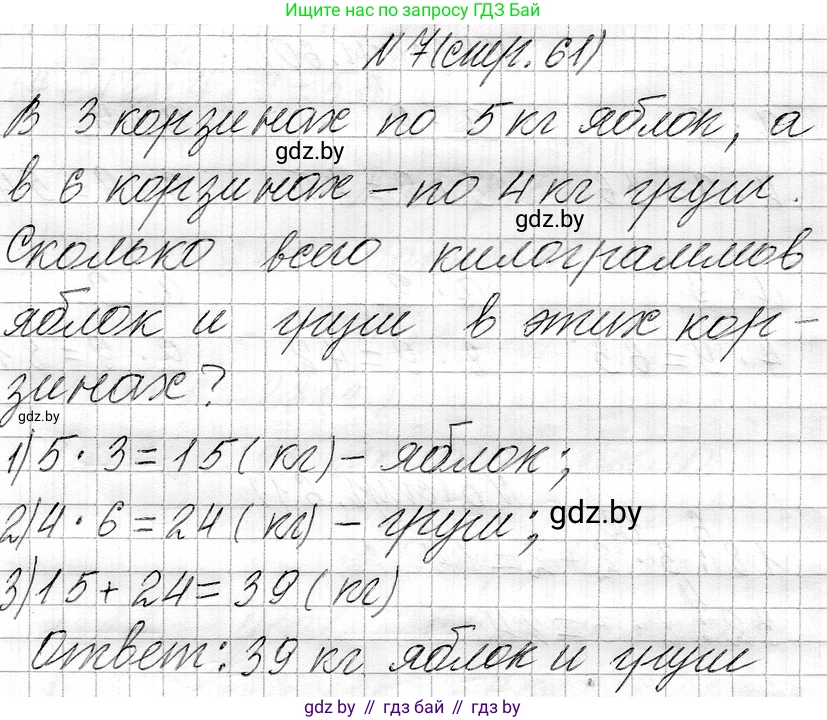 Ищите нас по запросу ГДЗ Бай
N 7 (стр. 61)
В 3 корзинах по 5 кг яблок, а
gdz.by
в 6 корзинах – по 4 кг груш.
gdz.by
Сколько всего килограммов
яблок и груш в этих кор-
зинах?
gdz.by
1) 5 · 3 = 15 (кг) – яблок;
2) 4 · 6 = 24 (кг) – груш;
gdz.by
3) 15 + 24 = 39 (кг)
Ответ: 39 кг яблок и груш
gdz.by // гдз бай // gdz.by